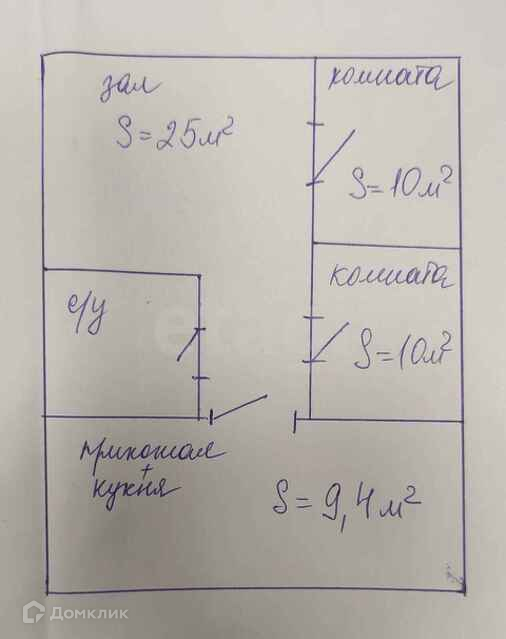 зал
S=25м²
комната
S=10м²
комната
S=10м²
с/у
прихожая
+
кухня
S=9,4м²
Домклик